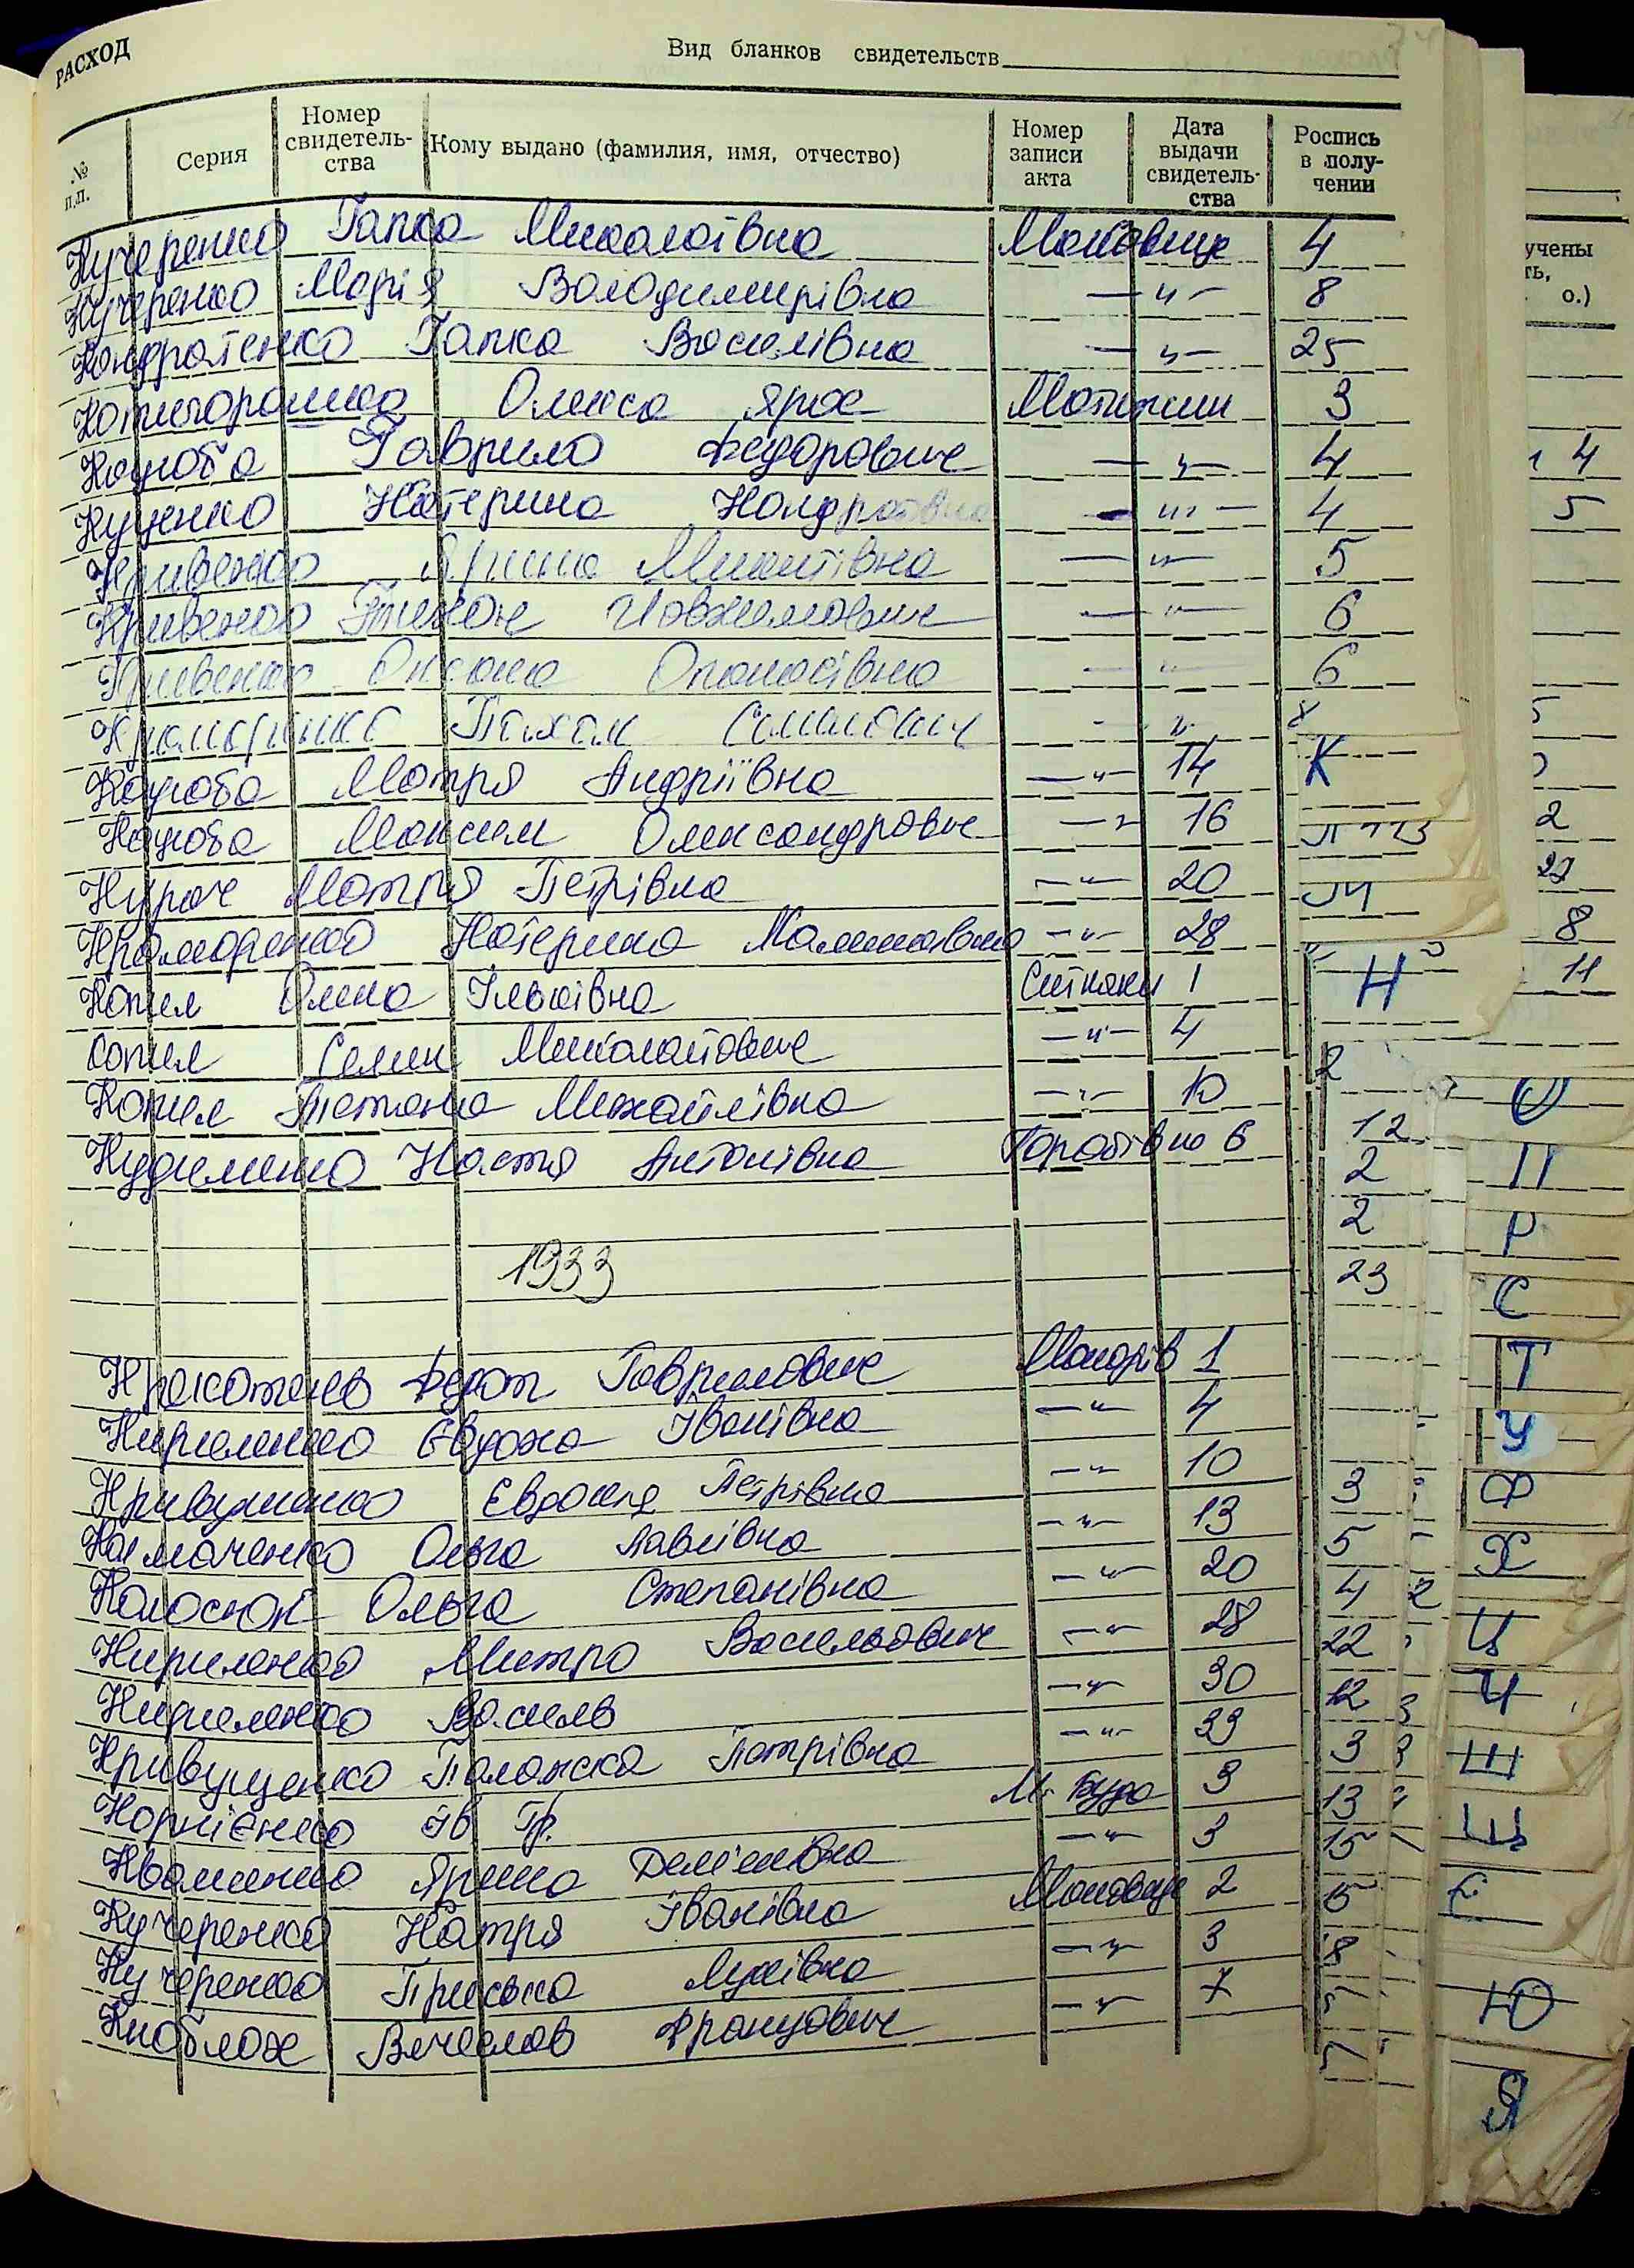 РАСХОД
Вид бланков свидетельств
№ п.п.
Серия
Номер свидетельства
Кому выдано (фамилия, имя, отчество)
Номер записи акта
Дата выдачи свидетельства
Роспись в получении
Кучеренко Гапка Миколаївна Маковище 4
Кучеренко Марія Володимирівна —"— 8
Кондратенко Гапка Василівна —"— 25
Котигорошко Олекса Ярох Мотижин 3
Коцюба Гаврило Федорович —"— 4
Куценко Катерина Кондратівна —"— 4
Кривенко Ярина Микитівна —"— 5
Кривенко Тихон Йовхимович —"— 6
Кривенко Оксана Опанасівна —"— 6
Крамаренко Пахом Семенович " 8
Коцюба Мотря Андріївна —"— 14
Коцюба Максим Олександрович —"— 16
Курач Мотря Петрівна —"— 20
Крамаренко Катерина —"— 28
Копил Олена Ільківна Ситняки 1
Копил Семен Миколайович —"— 4
Копил Тетяна Михайлівна —"— 10
Кудименко Настя Антонівна 6
1933
Федот Гаврилович Макарів 1
Кириленко Євдоха Іванівна —"— 4
Євдокія Петрівна —"— 10
Колмаченко Ольга Павлівна —"— 13
Колосюк Ольга Степанівна —"— 20
Кириленко Митро Васильович —"— 28
Кириленко Василь —"— 30
Кривущенко Палажка Петрівна —"— 33
Корнієнко Ів Гр. М. Буда 3
Кваменко Ярина —"— 3
Кучеренко Катря Іванівна Маковище 2
КучеренкоПриська Луківна —"— 3
Кноблох Вячеслав Францович —"— 7
учены
ть,
о.)
4
5
2
27
8
11
К
Н
О
П
Р
С
Т
У
Ф
Х
Ц
Ч
Ш
Щ
Є
Ю
Я
2
12
2
2
23
3
5
4
22
12
3
13
15